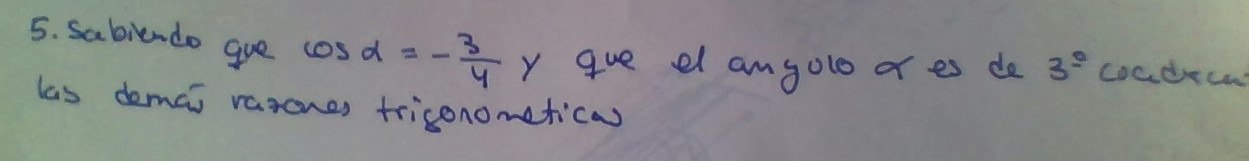 5. Sabiendo que cos α = -3/4 y que el angulo α es de 3º
las demás razones trigonometricas